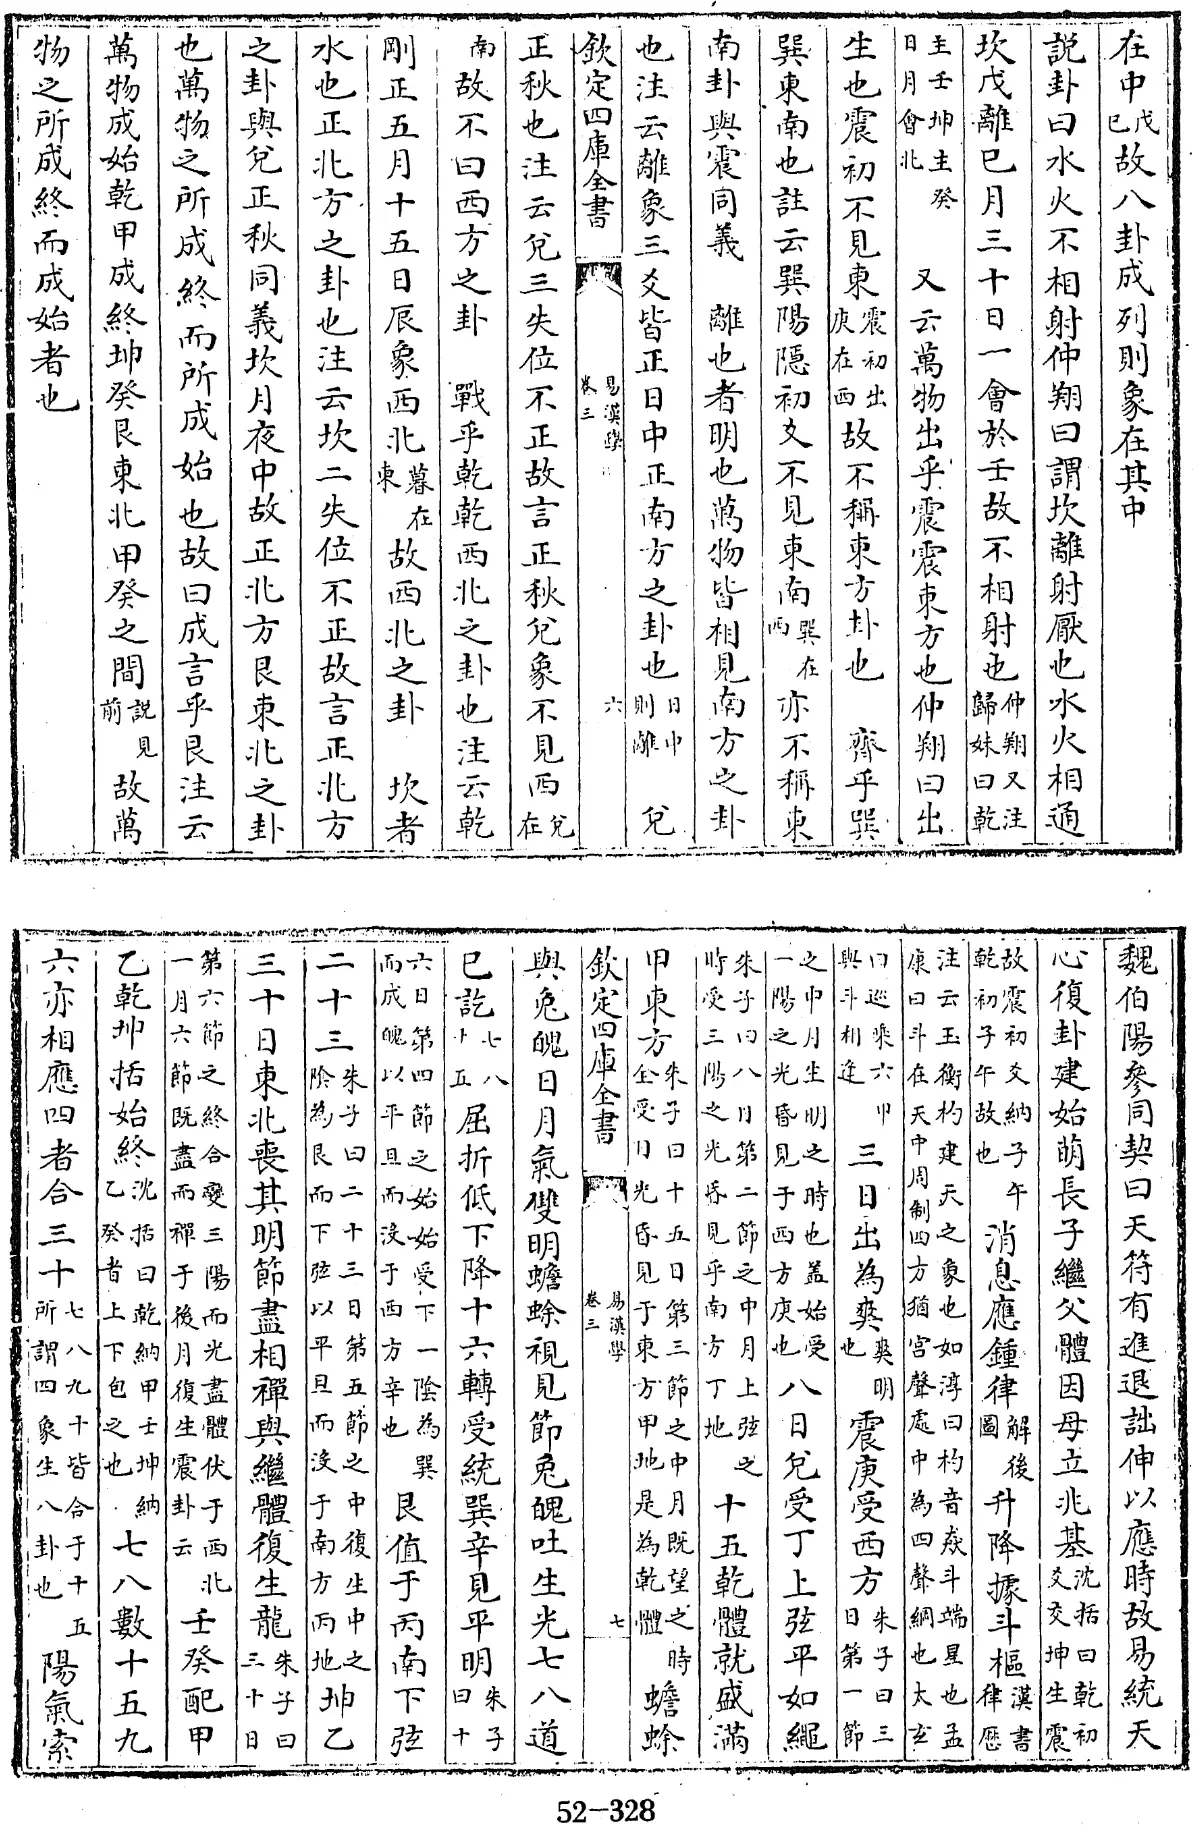 在中戊己故八卦成列則象在其中
説卦曰水火不相射仲翔曰謂坎離射厭也水火相通
坎戊離巳月三十日一會於壬故不相射也仲翔又注歸妹曰乾
主壬坤主癸日月會北又云萬物出乎震震東方也仲翔曰出
生也震初不見東震初出庚在西故不稱東方卦也 齊乎巽
巽東南也註云巽陽隱初爻不見東南巽在西亦不稱東
南卦與震同義 離也者明也萬物皆相見南方之卦
也注云離象三爻皆正日中正南方之卦也日中則離 兌
欽定四庫全書 易漢學 卷三 六
正秋也注云兌三失位不正故言正秋兌象不見西兌在
南故不曰西方之卦 戰乎乾乾西北之卦也注云乾
剛正五月十五日辰象西北暮在東故西北之卦 坎者
水也正北方之卦也注云坎二失位不正故言正北方
之卦與兌正秋同義坎月夜中故正北方艮東北之卦
也萬物之所成終而所成始也故曰成言乎艮注云
萬物成始乾甲成終坤癸艮東北甲癸之間説見前故萬
物之所成終而成始者也
魏伯陽參同契曰天符有進退詘伸以應時故易統天
心復卦建始萌長子繼父體因母立兆基沈括曰乾初爻交坤生震
故震初爻納子午乾初子午故也消息應鍾律解後圖升降據斗樞漢書律歷
注云玉衡杓建天之象也如淳曰杓音猋斗端星也孟康曰斗在天中周制四方猶宮聲處中為四聲綱也太玄
曰巡乘六甲與斗相逢三日出為爽爽明也震庚受西方朱子曰三日第一節
之中月生明之時也蓋始受一陽之光昏見于西方庚也八日兌受丁上弦平如繩
朱子曰八日第二節之中月上弦之時受三陽之光昏見乎南方丁地十五乾體就盛滿
甲東方朱子曰十五日第三節之中月既望之時全受日光昏見于東方甲地是為乾體蟾蜍
欽定四庫全書 易漢學 卷三 七
與兔魄日月氣雙明蟾蜍視見節兔魄吐生光七八道
巳訖七八十五屈折低下降十六轉受統巽辛見平明朱子曰十
六日第四節之始始受下一陰為巽而成魄以平旦而沒于西方辛也艮值于丙南下弦
二十三朱子曰二十三日第五節之中復生中之陰為艮而下弦以平旦而沒于南方丙地坤乙
三十日東北喪其明節盡相禪與繼體復生龍朱子曰三十日
第六節之終合變三陽而光盡體伏于西北一月六節既盡而禪于後月復生震卦云壬癸配甲
乙乾坤括始終沈括曰乾納甲壬坤納乙癸者上下包之也七八數十五九
六亦相應四者合三十七八九十皆合于十五所謂四象生八卦也陽氣索
52-328